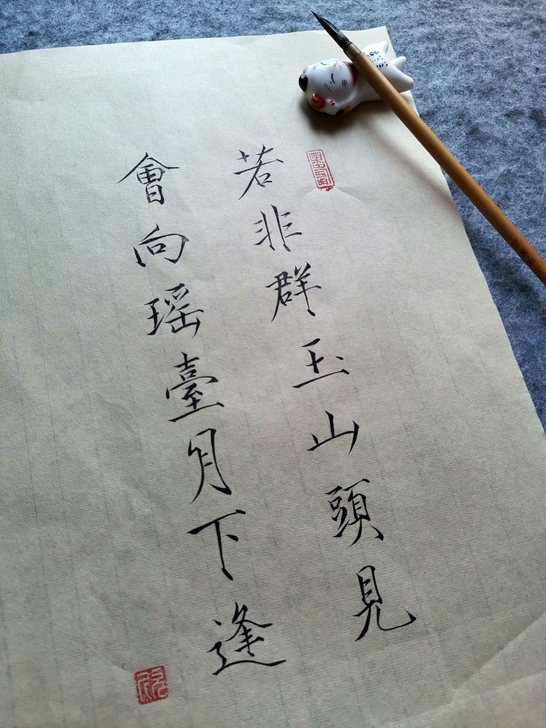 若非群玉山頭見
會向瑶臺月下逢